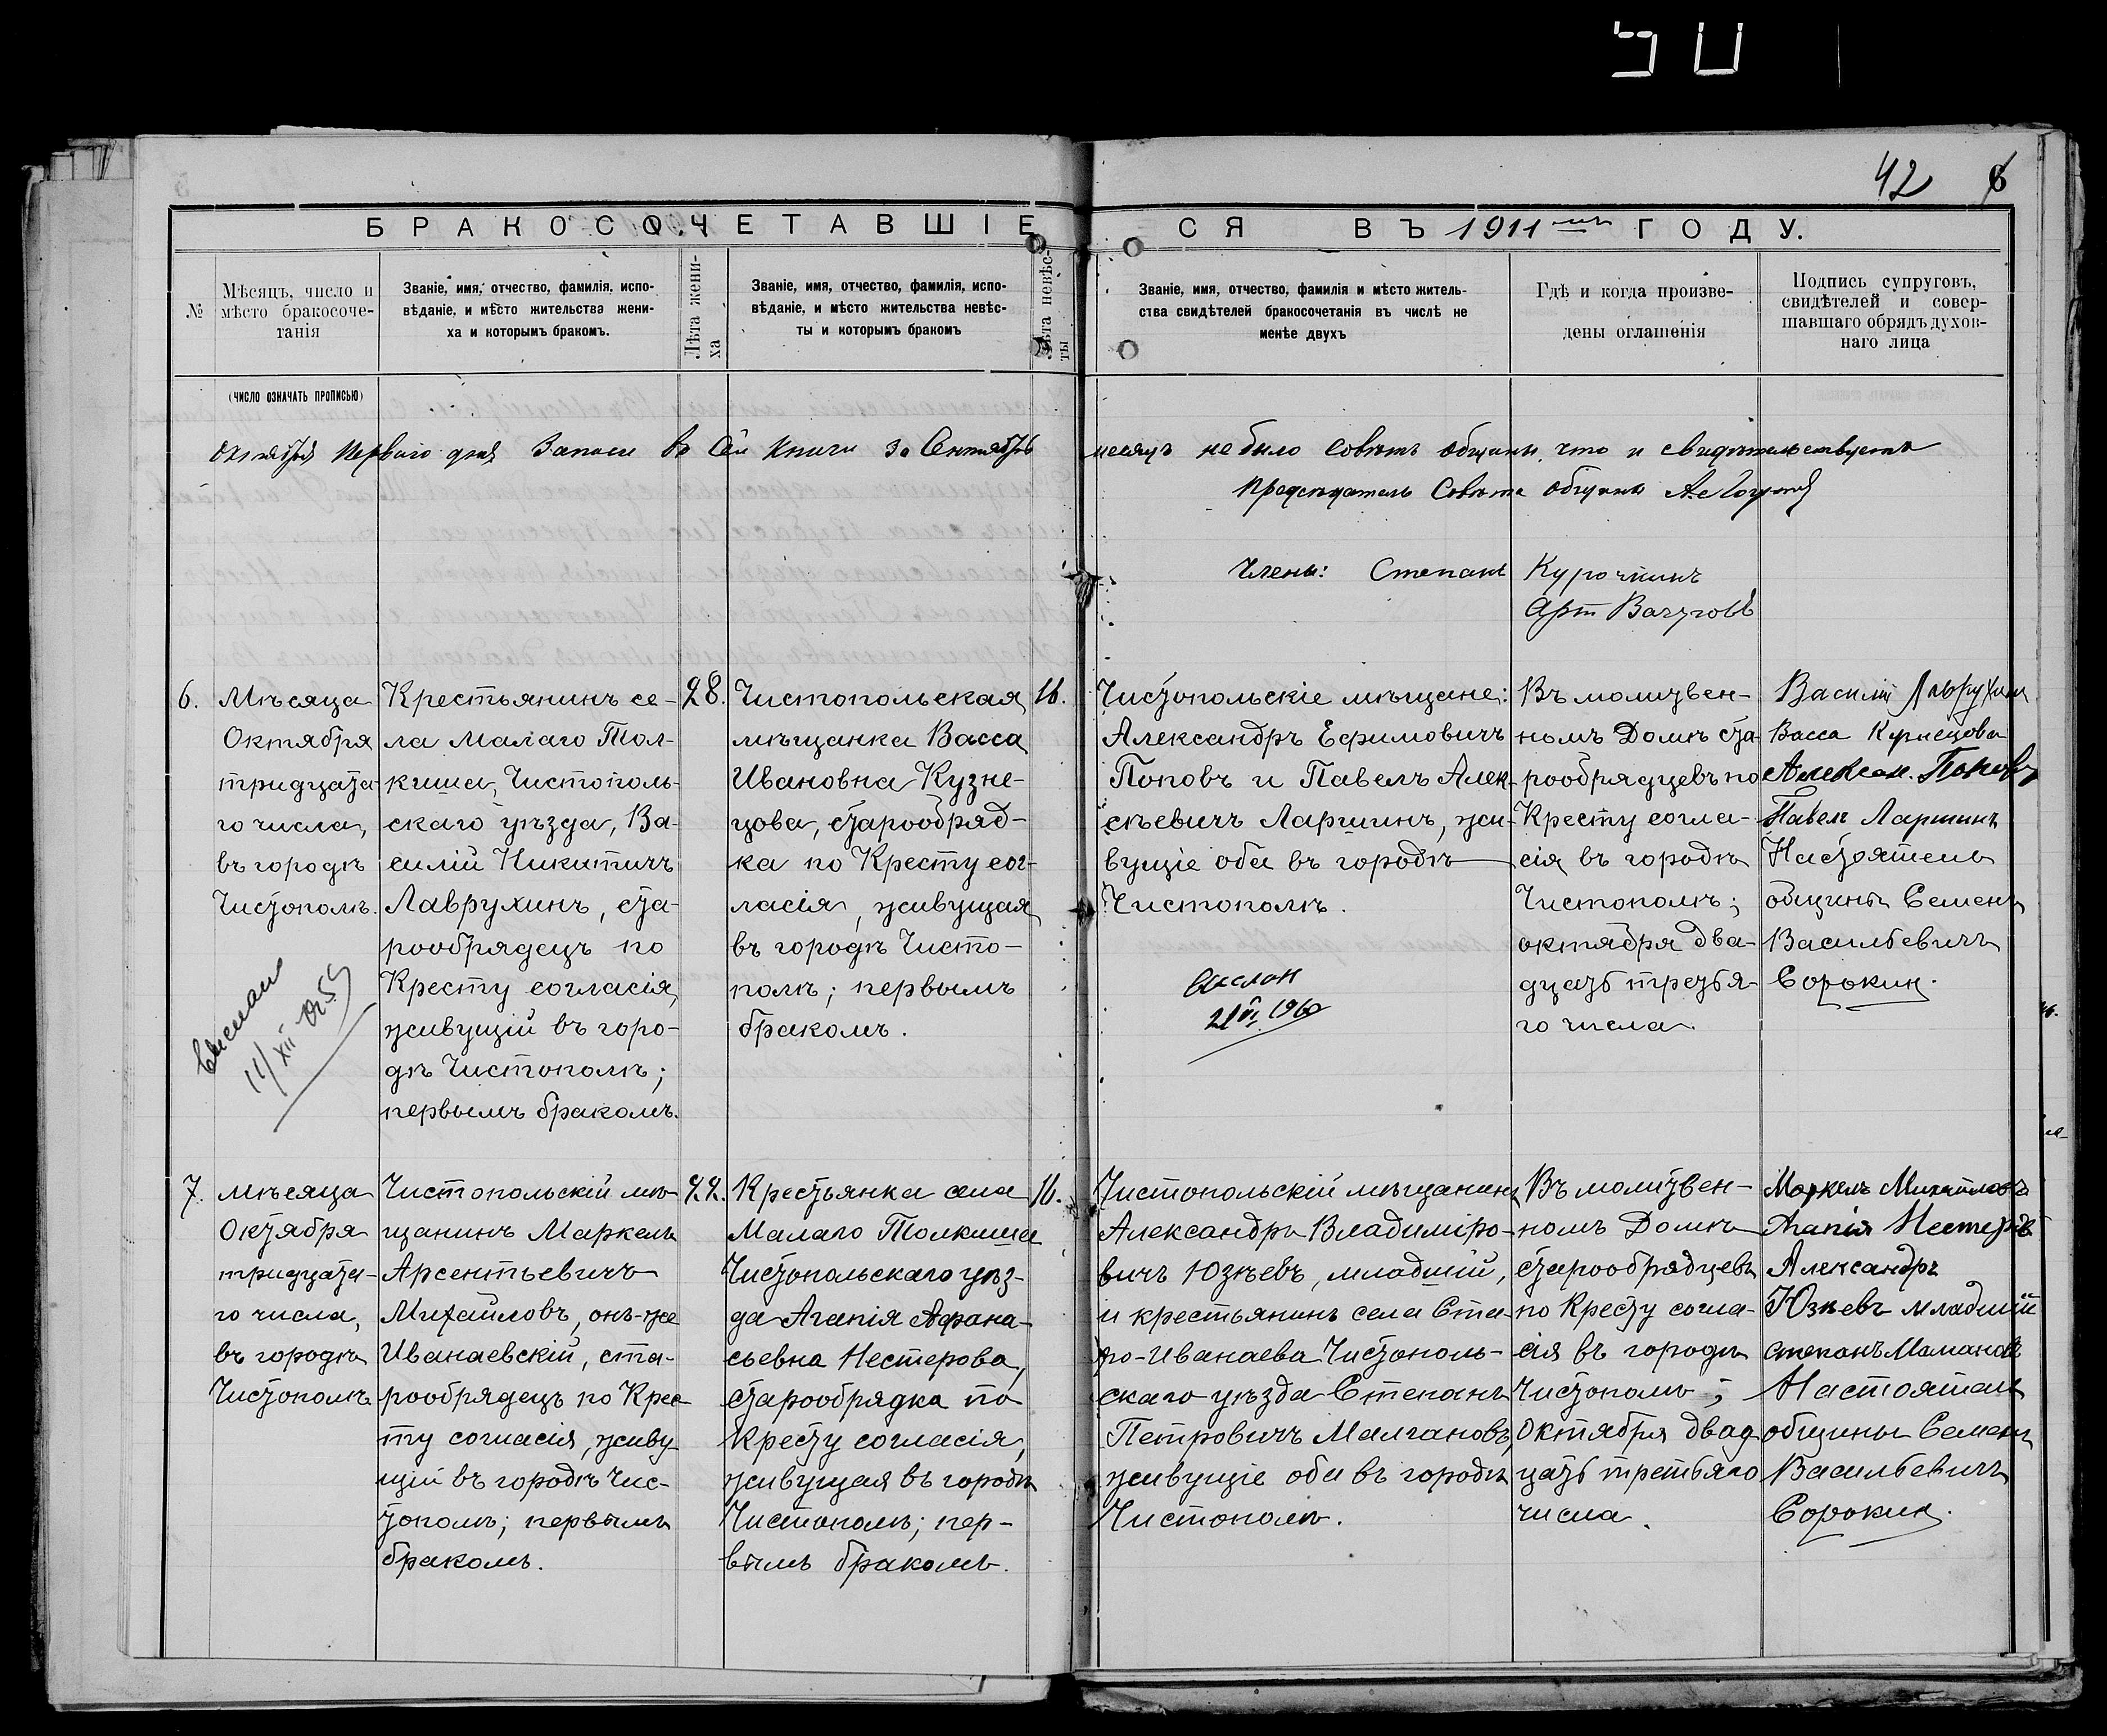 50
42 6
БРАКОСОЧЕТАВШІЕСЯ ВЪ 1911 ГОДУ.
№
Мѣсяцъ, число и
мѣсто бракосоче-
танія
Званіе, имя, отчество, фамилія, испо-
вѣданіе, и мѣсто жительства жени-
ха и которымъ бракомъ.
Лѣта жени-
ха
Званіе, имя, отчество, фамилія, испо-
вѣданіе, и мѣсто жительства невѣс-
ты и которымъ бракомъ
Лѣта невѣс-
ты
Званіе, имя, отчество, фамилія и мѣсто житель-
ства свидѣтелей бракосочетанія въ числѣ не
менѣе двухъ
Гдѣ и когда произве-
дены оглашенія
Подпись супруговъ,
свидѣтелей и совер-
шавшаго обрядъ духов-
наго лица
(ЧИСЛО ОЗНАЧАТЬ ПРОПИСЬЮ)
Октября Перваго дня Записи во Сей Книги За Сентябрь месяцъ не было Советъ общины, что и свидѣтельствуетъ
Председатель Совета общины
Члены: Степанъ Курочкинъ
Арт Вачуговъ
6.
Мѣсяца
Октября
тридцата-
го числа,
въ городѣ
Чистополѣ.
Крестьянинъ се-
ла Малаго Тол-
киша, Чистополь-
скаго уѣзда, Ва-
силій Никитичъ
Лаврухинъ, ста-
рообрядецъ по
Кресту согласія,
живущій въ горо-
дѣ Чистополѣ;
первымъ бракомъ.
28.
Чистопольская
мѣщанка Васса
Ивановна Кузне-
цова, старообряд-
ка по Кресту сог-
ласія, живущая
въ городѣ Чисто-
полѣ; первымъ
бракомъ.
16.
Чистопольскіе мѣщане:
Александръ Ефимовичъ
Поповъ и Павелъ Алек-
сѣевичъ Ларшинъ, жи-
вущіе оба въ городѣ
Чистополѣ.
Въ молитвен-
номъ Домѣ ста-
рообрядцевъ по
Кресту согла-
сія въ городѣ
Чистополѣ;
октября два-
дцать третья-
го числа.
Василій Лаврухин
Васса Кузнецова
Алексан. Поповъ
Павелъ Ларшинъ
Настоятель
общины Семенъ
Васильевичъ
Сорокин.
Выслан
11/XII 1959
Выслан
21/VI 1960
7.
Мѣсяца
Октября
тридцата-
го числа,
въ городѣ
Чистополѣ
Чистопольскій мѣ-
щанинъ Маркелъ
Арсентьевичъ
Михайловъ, онъ-же
Иванаевскій, ста-
рообрядецъ по Крес-
ту согласія, живу-
щій въ городѣ Чис-
тополѣ; первымъ
бракомъ.
22.
Крестьянка села
Малаго Толкиша
Чистопольскаго уѣз-
да Агапія Афана-
сьевна Нестерова,
старообрядка по
Кресту согласія,
живущая въ городѣ
Чистополѣ; пер-
вымъ бракомъ.
16.
Чистопольскій мѣщанинъ
Александръ Владиміро-
вичъ Юзѣевъ, младшій,
и крестьянинъ села Ста-
ро-Иванаева Чистополь-
скаго уѣзда Степанъ
Петровичъ Малгановъ,
живущіе оба въ городѣ
Чистополѣ.
Въ молитвен-
номъ Домѣ
старообрядцевъ
по Кресту согла-
сія въ городѣ
Чистополѣ;
Октября двад-
цать третьяго
числа.
Маркелъ Михайловъ
Агапія Нестерова
Александръ
Юзѣевъ младшій
Настоятель
общины Семенъ
Васильевичъ
Сорокин.